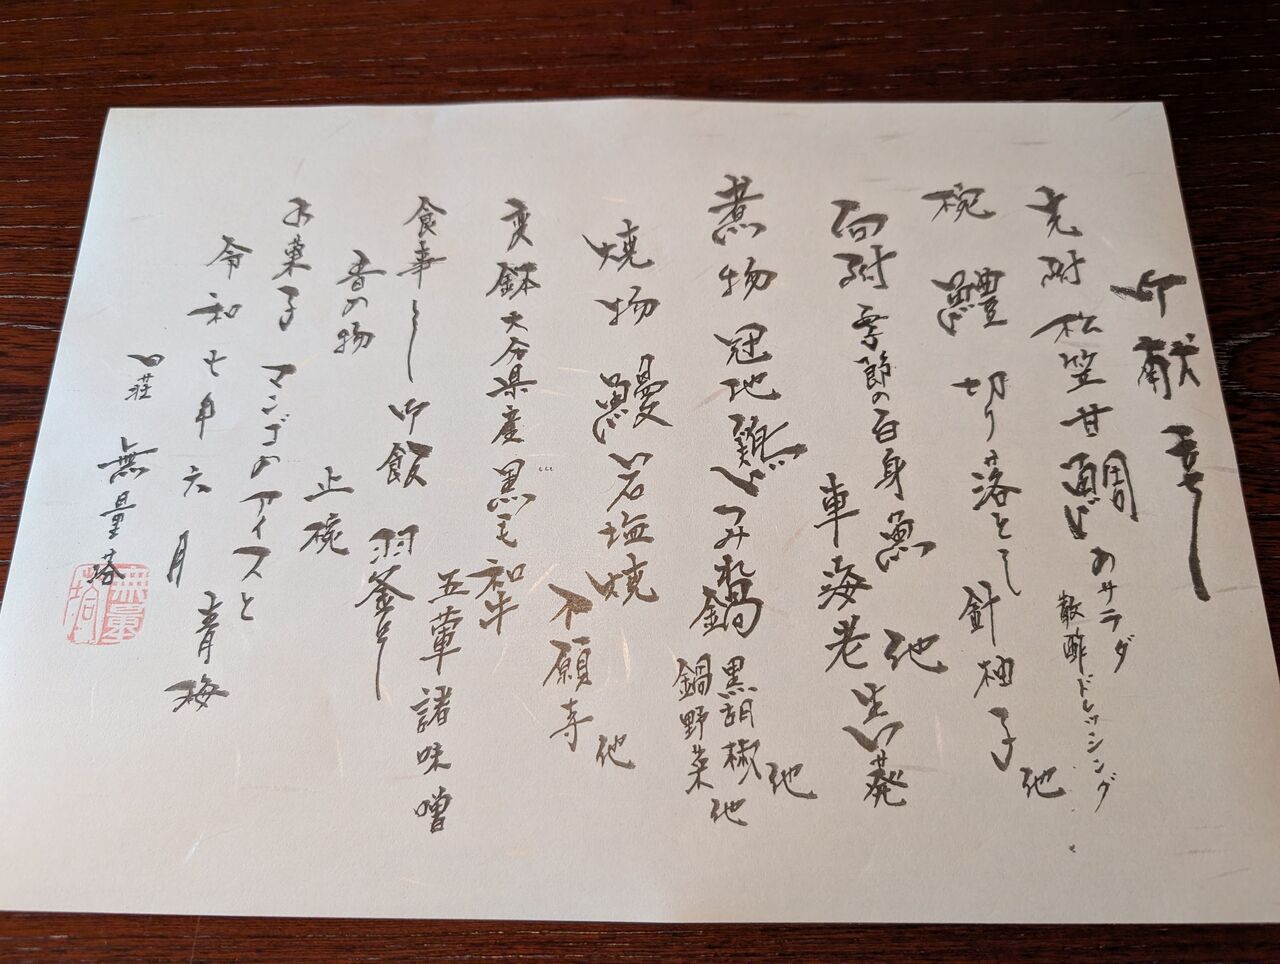 御献立
先附 松笠甘鯛のサラダ
散酢ドレッシング
椀 鱧 切り落とし 針柚子 他
向附 季節の白身魚 他
車海老 生
煮物 冠地鶏つみれ鍋 黒胡椒 他
鍋野菜 他
焼物 鰻岩塩焼 他
不願寺
変鉢 大分県産黒毛和牛
五葷諸味噌
食事 御飯 羽釜
香の物 止椀
水菓子 マンゴのアイスと
青梅
令和七年六月
山荘 無量塔
無量塔